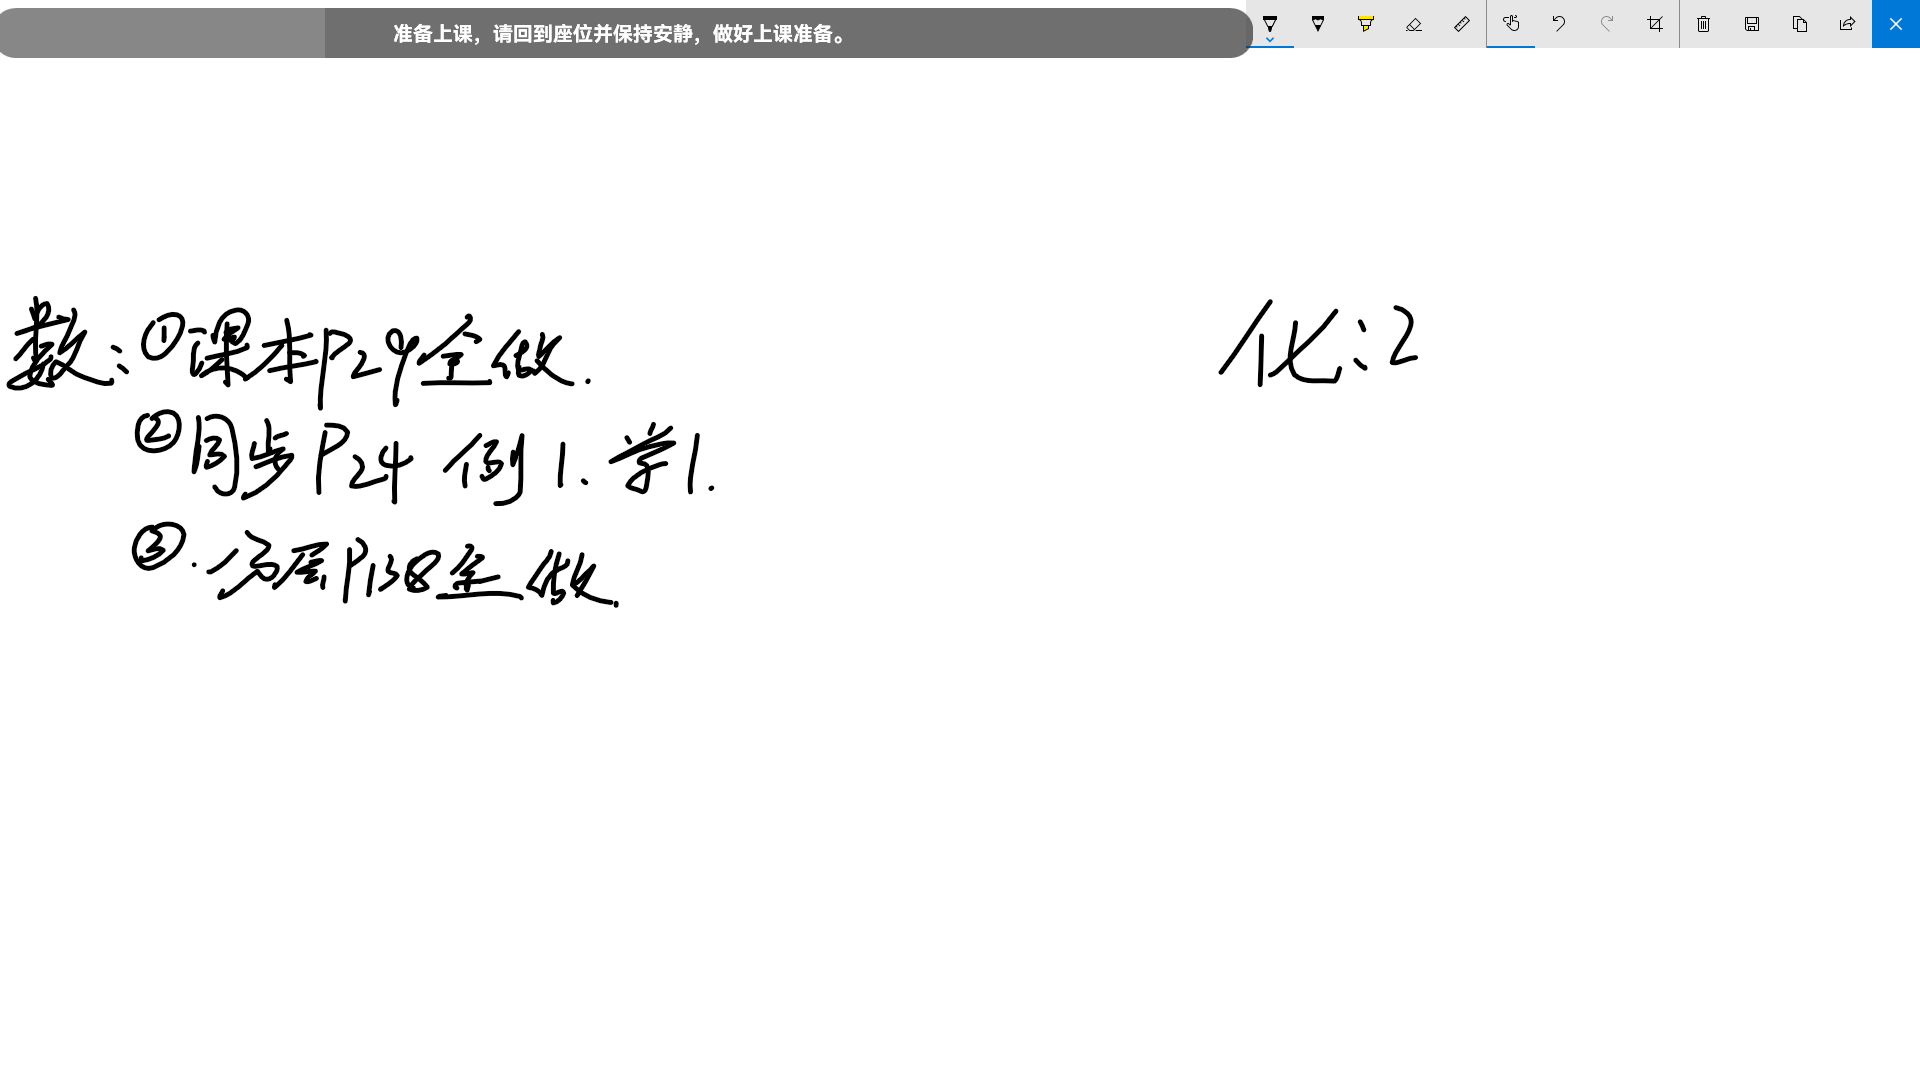 准备上课，请回到座位并保持安静，做好上课准备。
数：①课本P29全做.
化：2
②同步P24 例1、学1.
③.分层P138全做.